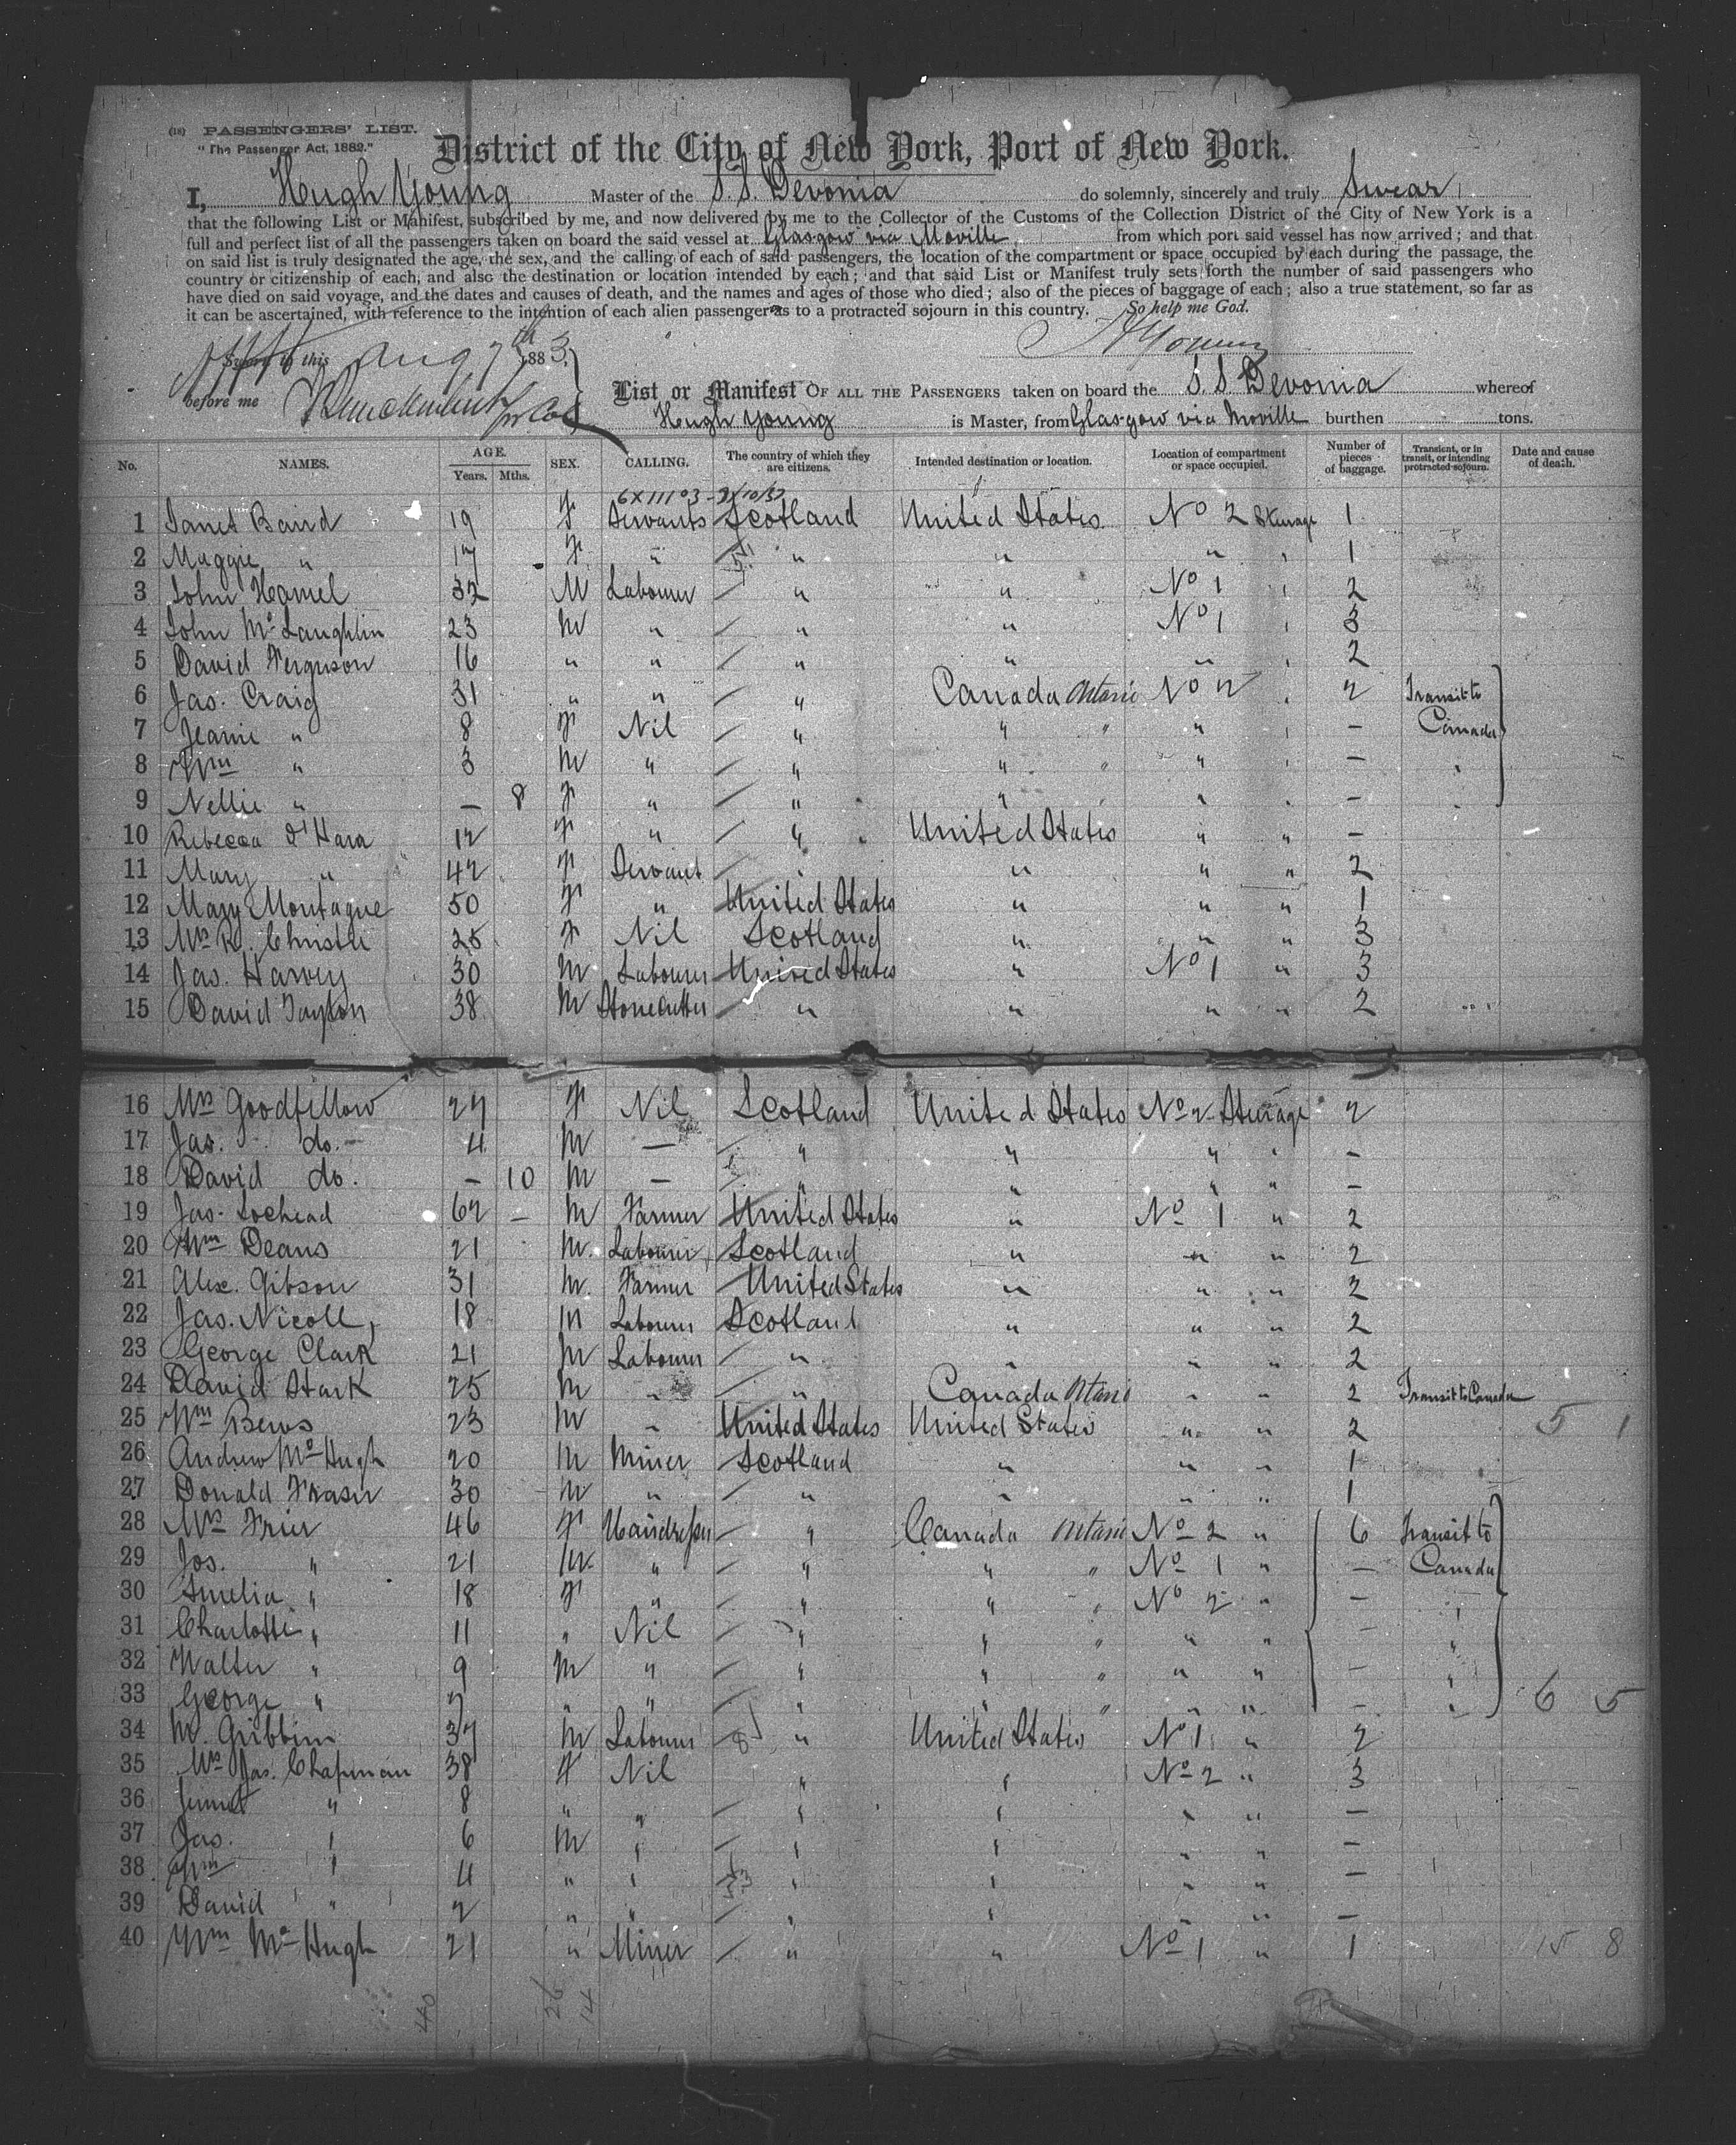 (18) PASSENGERS' LIST.
"The Passenger Act, 1882."
District of the City of New York, Port of New York.
I, Hugh Young Master of the S.S. Devonia do solemnly, sincerely and truly Swear
that the following List or Manifest, subscribed by me, and now delivered by me to the Collector of the Customs of the Collection District of the City of New York is a
full and perfect list of all the passengers taken on board the said vessel at Glasgow via Moville from which port said vessel has now arrived; and that
on said list is truly designated the age, the sex, and the calling of each of said passengers, the location of the compartment or space occupied by each during the passage, the
country or citizenship of each, and also the destination or location intended by each; and that said List or Manifest truly sets forth the number of said passengers who
have died on said voyage, and the dates and causes of death, and the names and ages of those who died; also of the pieces of baggage of each; also a true statement, so far as
it can be ascertained, with reference to the intention of each alien passenger as to a protracted sojourn in this country. So help me God.
Sworn to this Aug 7th 1883. H Young
before me
List or Manifest OF ALL THE PASSENGERS taken on board the S.S. Devonia whereof
Hugh Young is Master, from Glasgow via Moville burthen tons.
No. NAMES. AGE. Years. Mths. SEX. CALLING. The country of which they are citizens. Intended destination or location. Location of compartment or space occupied. Number of pieces of baggage. Transient, or in transit, or intending protracted sojourn. Date and cause of death.
1 Janet Baird 19 F Servants Scotland United States No 2 Steerage 1
2 Maggie " 17 F " " " " " 1
3 John Hamel 32 M Labourer " " No 1 " 2
4 John McLaughlin 23 M " " " No 1 " 3
5 David Ferguson 16 " " " " " " 2
6 Jas. Craig 31 " " " Canada Ontario No 2 " 2 Transit to
7 Jeanie " 8 F Nil " " " " " — Canada
8 Wm " 3 M " " " " " " —
9 Nellie " — 8 F " " " " " —
10 Rebecca O'Hara 12 F " " United States " " —
11 Mary " 42 F Servant " " " " 2
12 Mary Montague 50 F " United States " " " 1
13 Mrs R. Christie 25 F Nil Scotland " " " 3
14 Jas. Harvey 30 M Labourer United States " No 1 " 3
15 David Taylor 38 M Stonecutter " " " " 2
16 Mrs Goodfellow 27 F Nil Scotland United States No 2 Steerage 2
17 Jas. do. 4 M — " " " " —
18 David do. — 10 M — " " " " —
19 Jas. Lochead 62 — M Farmer United States " No 1 " 2
20 Wm Deans 21 M. Labourer Scotland " " " 2
21 Alex. Gibson 31 M. Farmer United States " " " 2
22 Jas. Nicoll, 18 M Labourer Scotland " " " 2
23 George Clark 21 M Labourer " " " " 2
24 David Stark 25 M " " Canada Ontario " " 2 Transit to Canada
25 Wm Bews 23 M " United States United States " " 2 5 1
26 Andrew McHugh 20 M Miner Scotland " " " 1
27 Donald Fraser 30 M " " " " " 1
28 Mrs Frier 46 F Hairdresser " Canada Ontario No 2 " 6 Transit to
29 Jos. " 21 M. " " " " No 1 " — Canada
30 Amelia " 18 F " " " " No 2 " — "
31 Charlotte " 11 " Nil " " " " " — "
32 Walter " 9 M " " " " " " — "
33 George " 7 " " " " " " " — " 6 5
34 W. Gribbin 37 M Labourer " United States No 1 " 2
35 Mrs Jas. Chapman 38 F Nil " " No 2 " 3
36 Jennet " 8 " " " " " " —
37 Jas. " 6 M " " " " " —
38 Wm " 4 " " " " " " —
39 David " 2 " " " " " " —
40 Wm McHugh 21 " Miner " " No 1 " 1 15 8
40 26 14